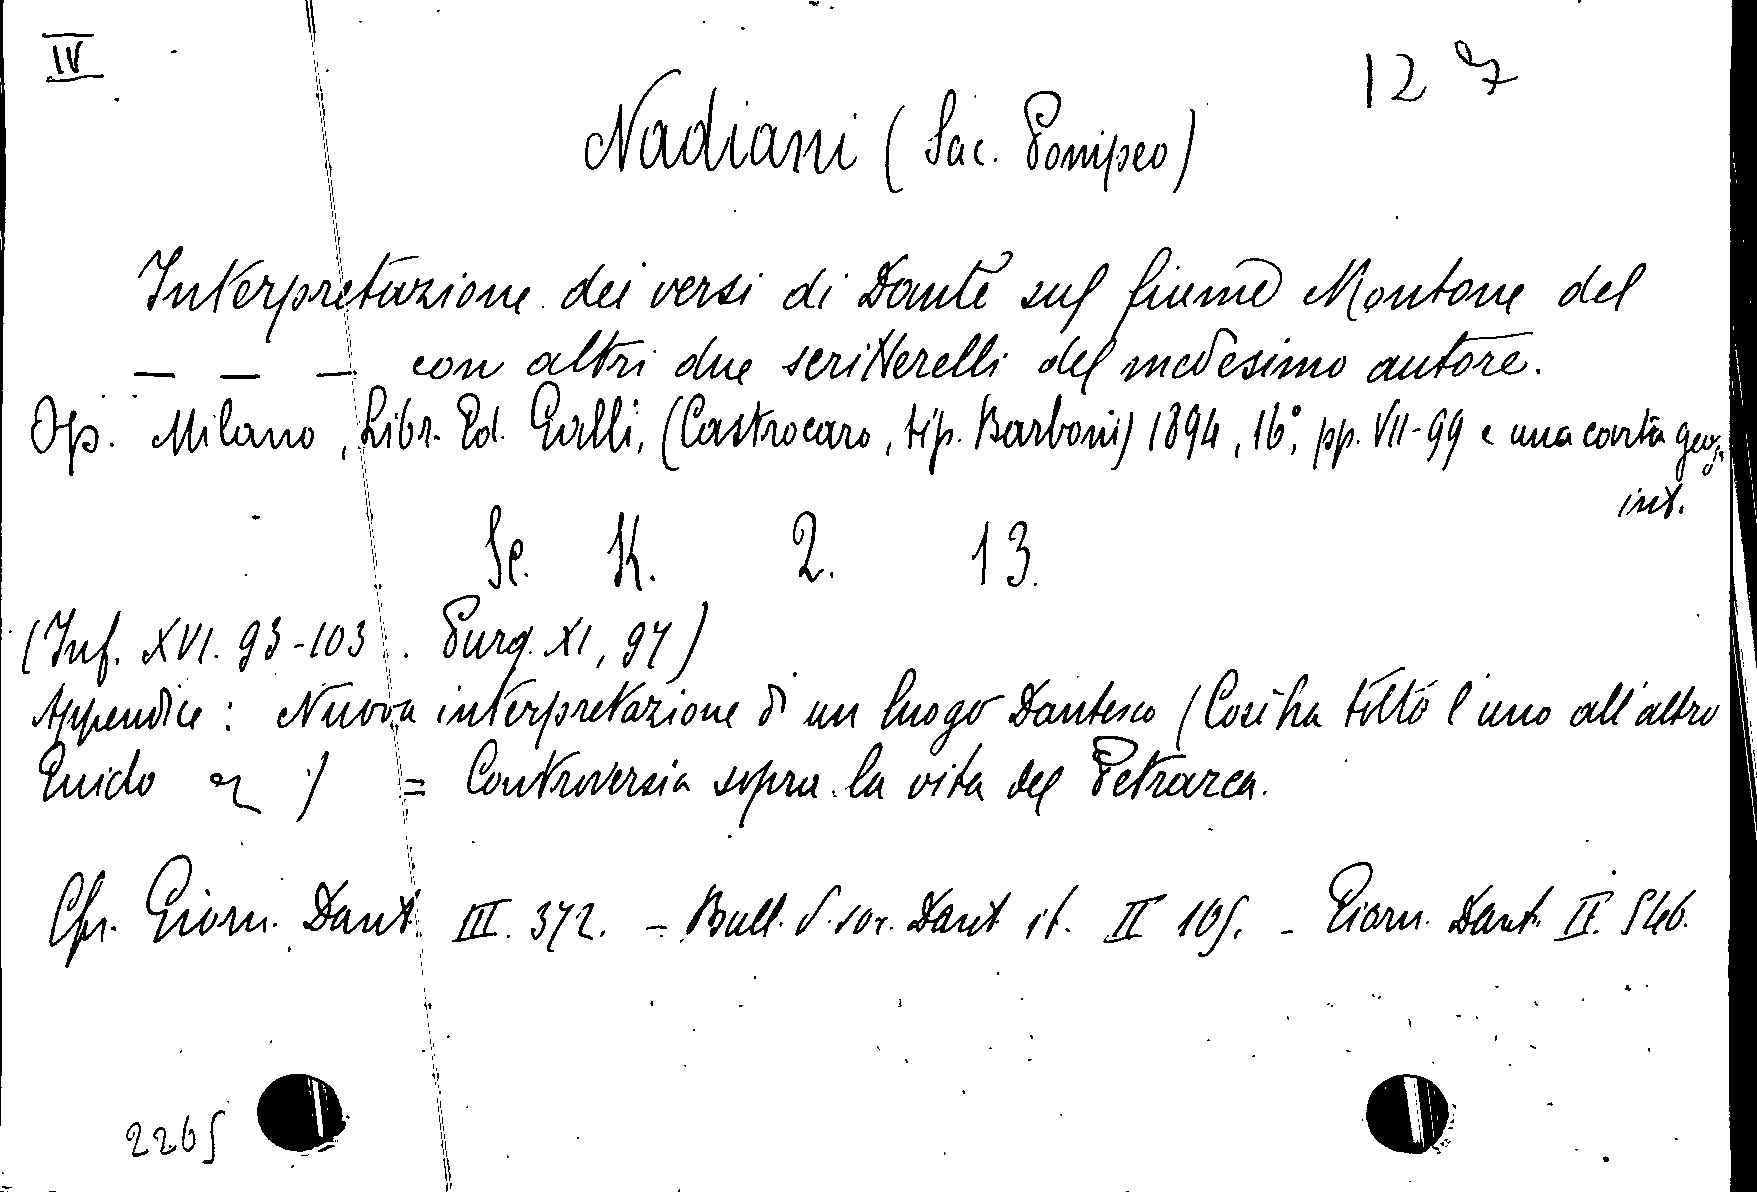 IV
127
Nadiani (Sac. Pompeo)
Interpretazione dei versi di Dante sul fiume Montone del
— — — con altri due scritterelli del medesimo autore.
Op. Milano, Libr. Ed. Galli, (Castrocaro, tip. Barboni) 1894, 16°, pp. VII-99 e una carta geog.
int.
Sc. K. 2. 13.
(Inf. XVI. 93-103. Purg. XI, 97)
Appendice: Nuova interpretazione di un luogo Dantesco (Così ha tolto l'uno all'altro
Guido ) = Controversia sopra la vita del Petrarca.
Cfr. Giorn. Dant. III. 372. - Bull. d. soc. Dant it. II 105. - Giorn. Dant. II. 546.
2265